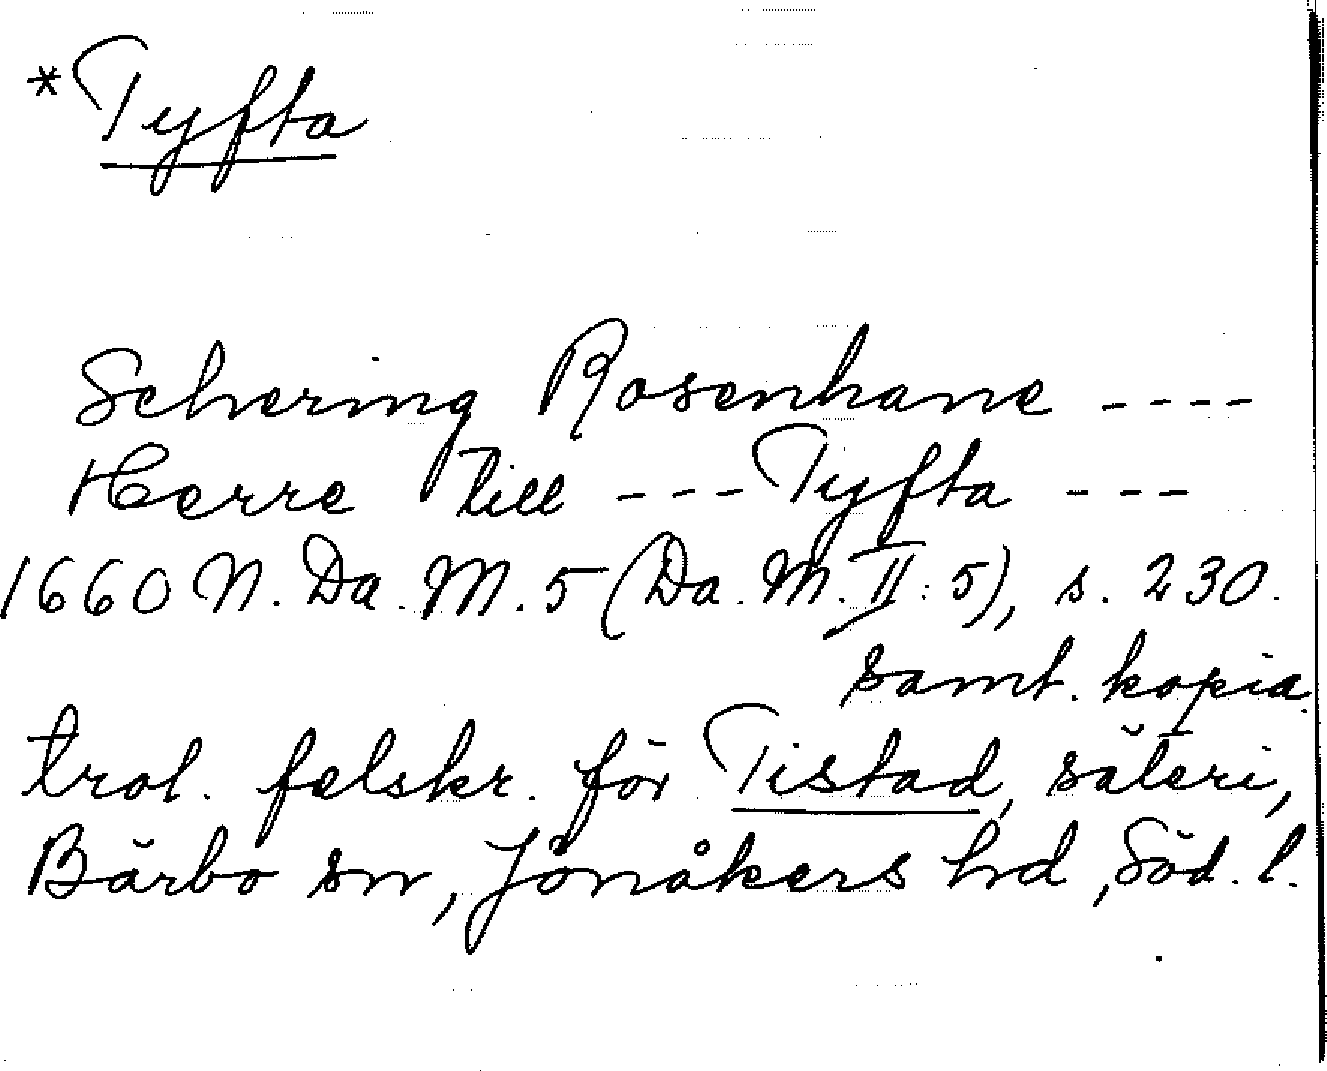 *Tyfta
Schering Rosenhane ----
Herre till --- Tyfta ---
1660 N. Da. M. 5 (Da. M. II: 5), s. 230.
samt. kopia.
trol. felskr. för Tistad, säteri,
Bärbo sn, Jönåkers hd, Söd. l.